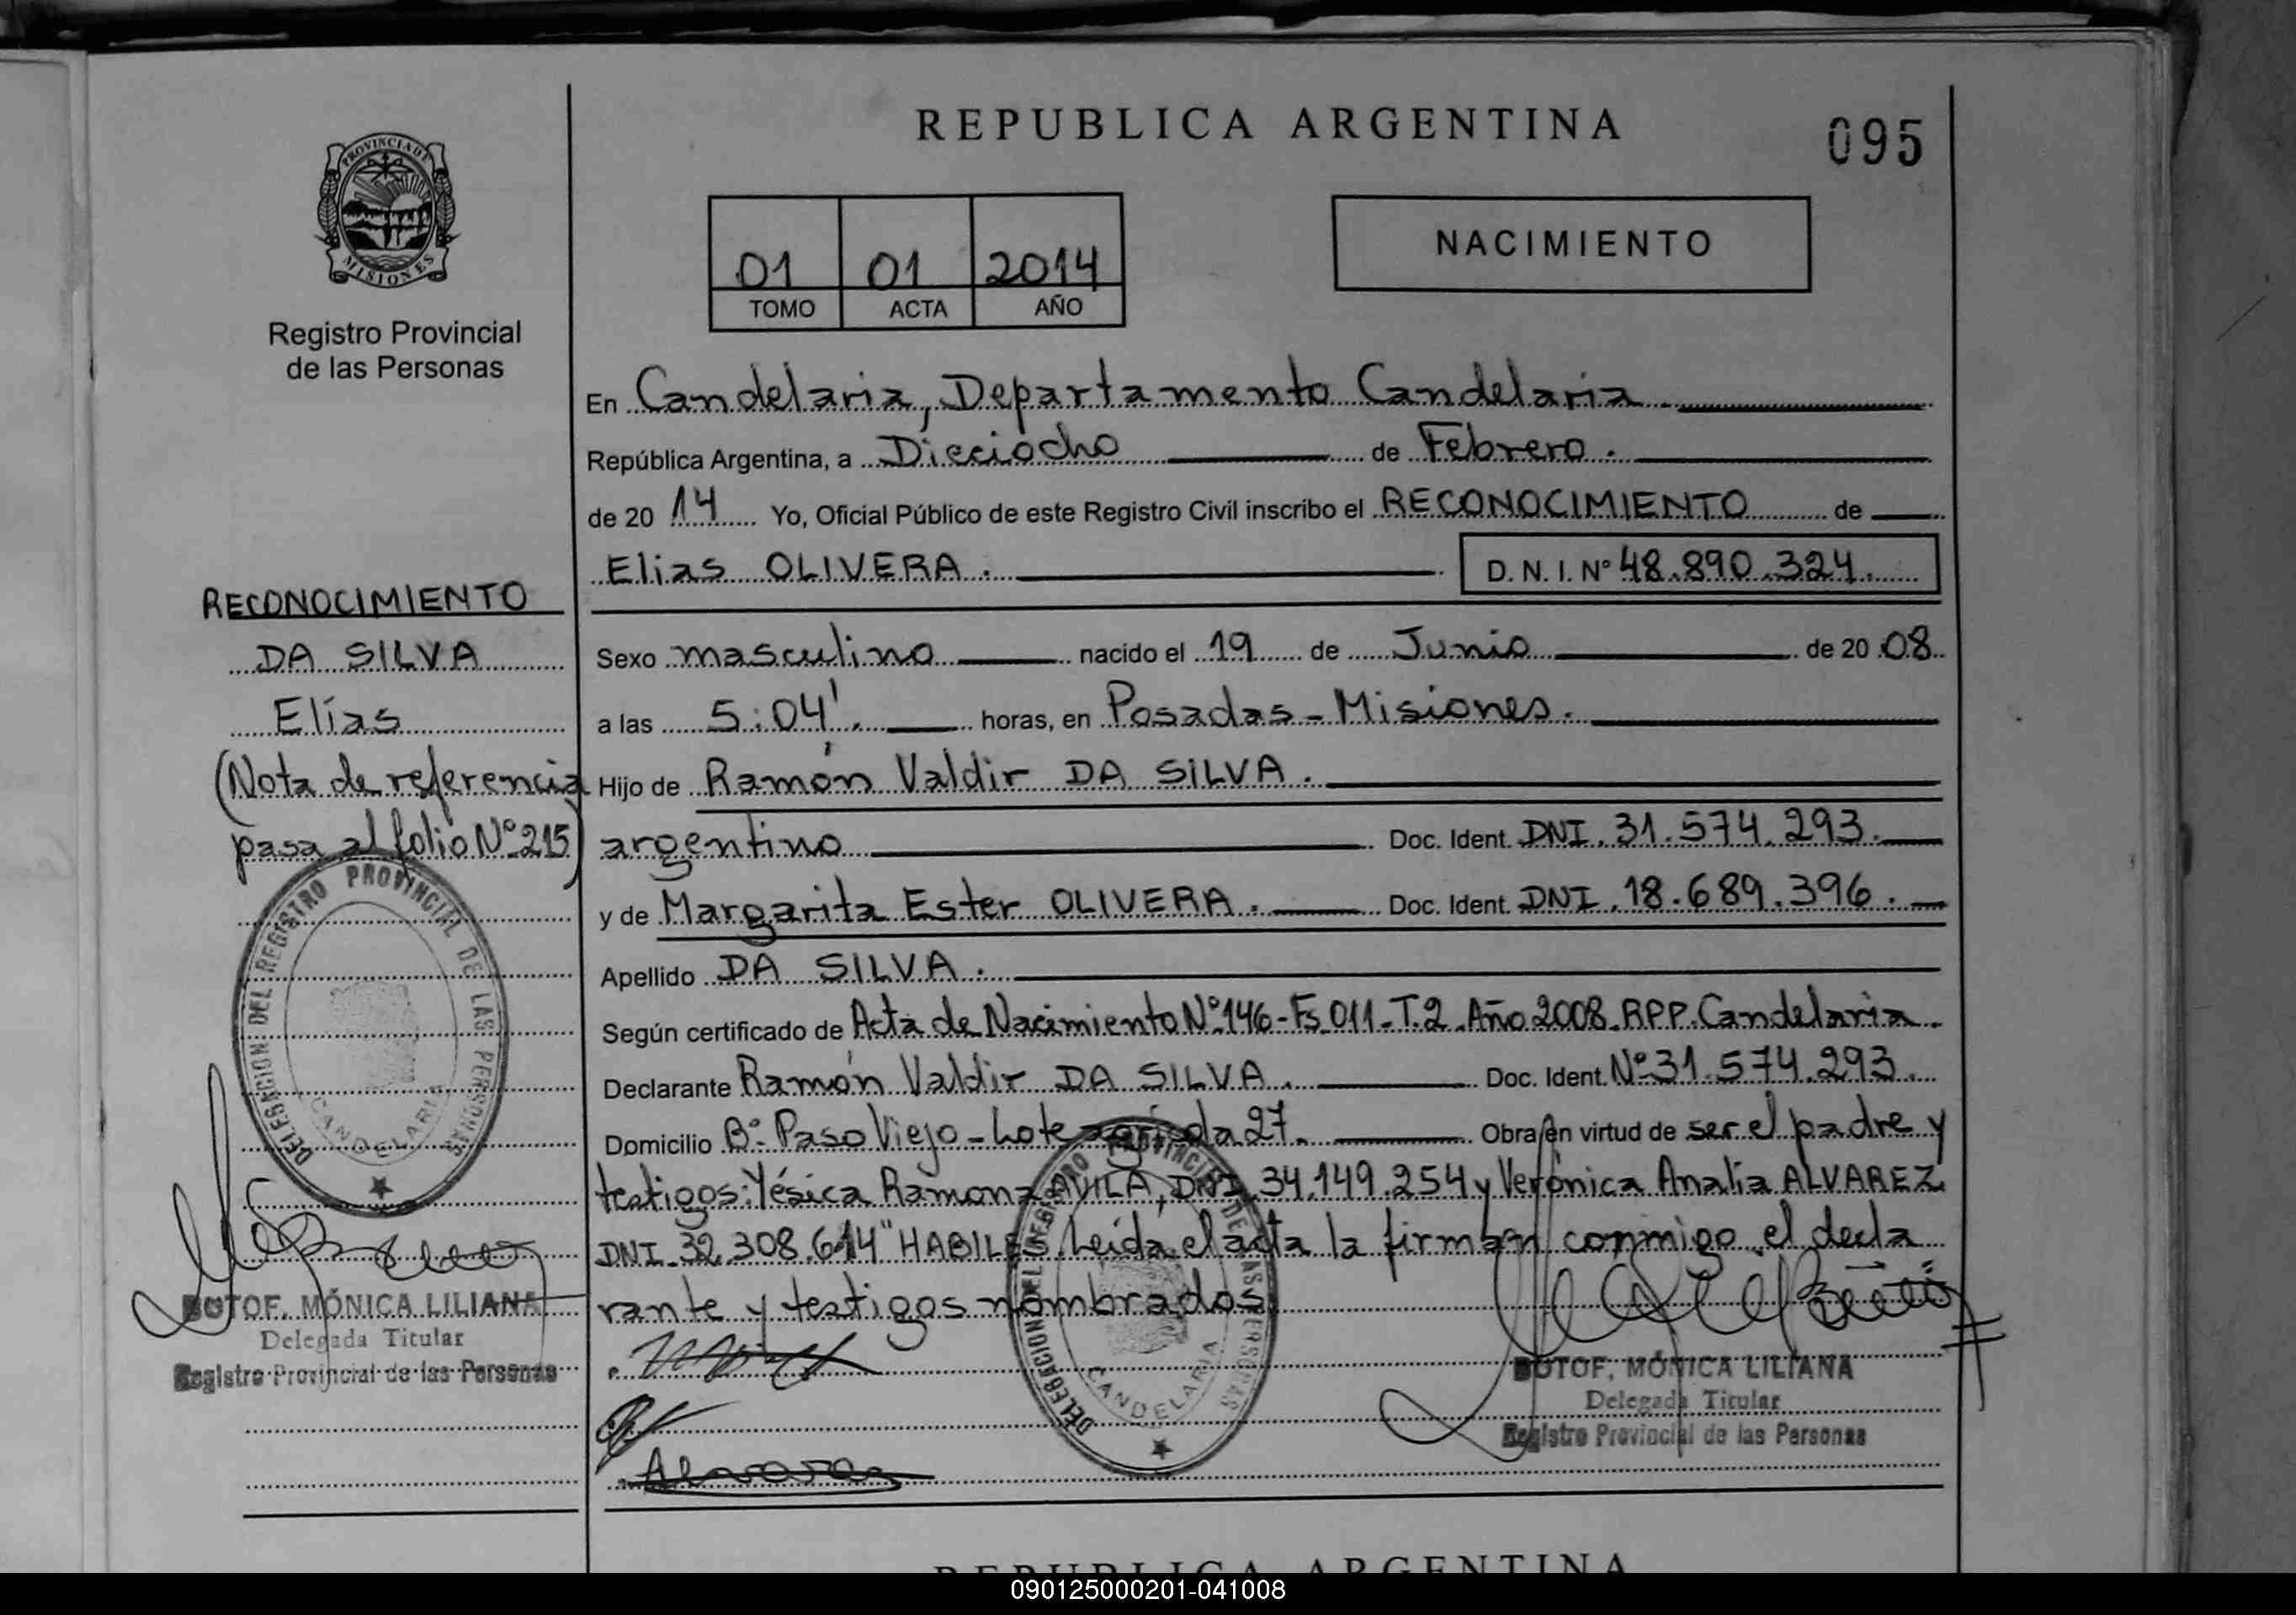 REPUBLICA ARGENTINA
095
PROVINCIA DE
MISIONES
Registro Provincial
de las Personas
01 01 2014
TOMO ACTA AÑO
NACIMIENTO
En Candelaria, Departamento Candelaria
República Argentina, a Dieciocho de Febrero.
de 20 14 Yo, Oficial Público de este Registro Civil inscribo el RECONOCIMIENTO de
Elias OLIVERA. D. N. I. Nº 48.890.324.
RECONOCIMIENTO
DA SILVA
Elías
(Nota de referencia
pasa al folio Nº 215)
Sexo masculino nacido el 19 de Junio de 20 08
a las 5:04'. horas, en Posadas - Misiones.
Hijo de Ramón Valdir DA SILVA.
argentino Doc. Ident. DNI. 31.574.293.
y de Margarita Ester OLIVERA. Doc. Ident. DNI. 18.689.396.
Apellido DA SILVA.
Según certificado de Acta de Nacimiento Nº 146-Fs 011-T.2 Año 2008. RPP. Candelaria.
Declarante Ramón Valdir DA SILVA. Doc. Ident. Nº 31.574.293.
Domicilio Bº Paso Viejo - Lote agrícola 27. Obra en virtud de ser el padre y
testigos: Yésica Ramona AVILA, DNI. 34.149.254 y Verónica Analía ALVAREZ
DNI. 32.308.614 "HABILES. Leída el acta la firman conmigo el decla
rante y testigos nombrados
DELEGACION DEL REGISTRO PROVINCIAL DE LAS PERSONAS
CANDELARIA
BOTOF, MÓNICA LILIANA
Delegada Titular
Registro Provincial de las Personas
DELEGACION DEL REGISTRO PROVINCIAL DE LAS PERSONAS
CANDELARIA
Alvarez
BOTOF, MÓNICA LILIANA
Delegada Titular
Registro Provincial de las Personas
REPUBLICA ARGENTINA
090125000201-041008